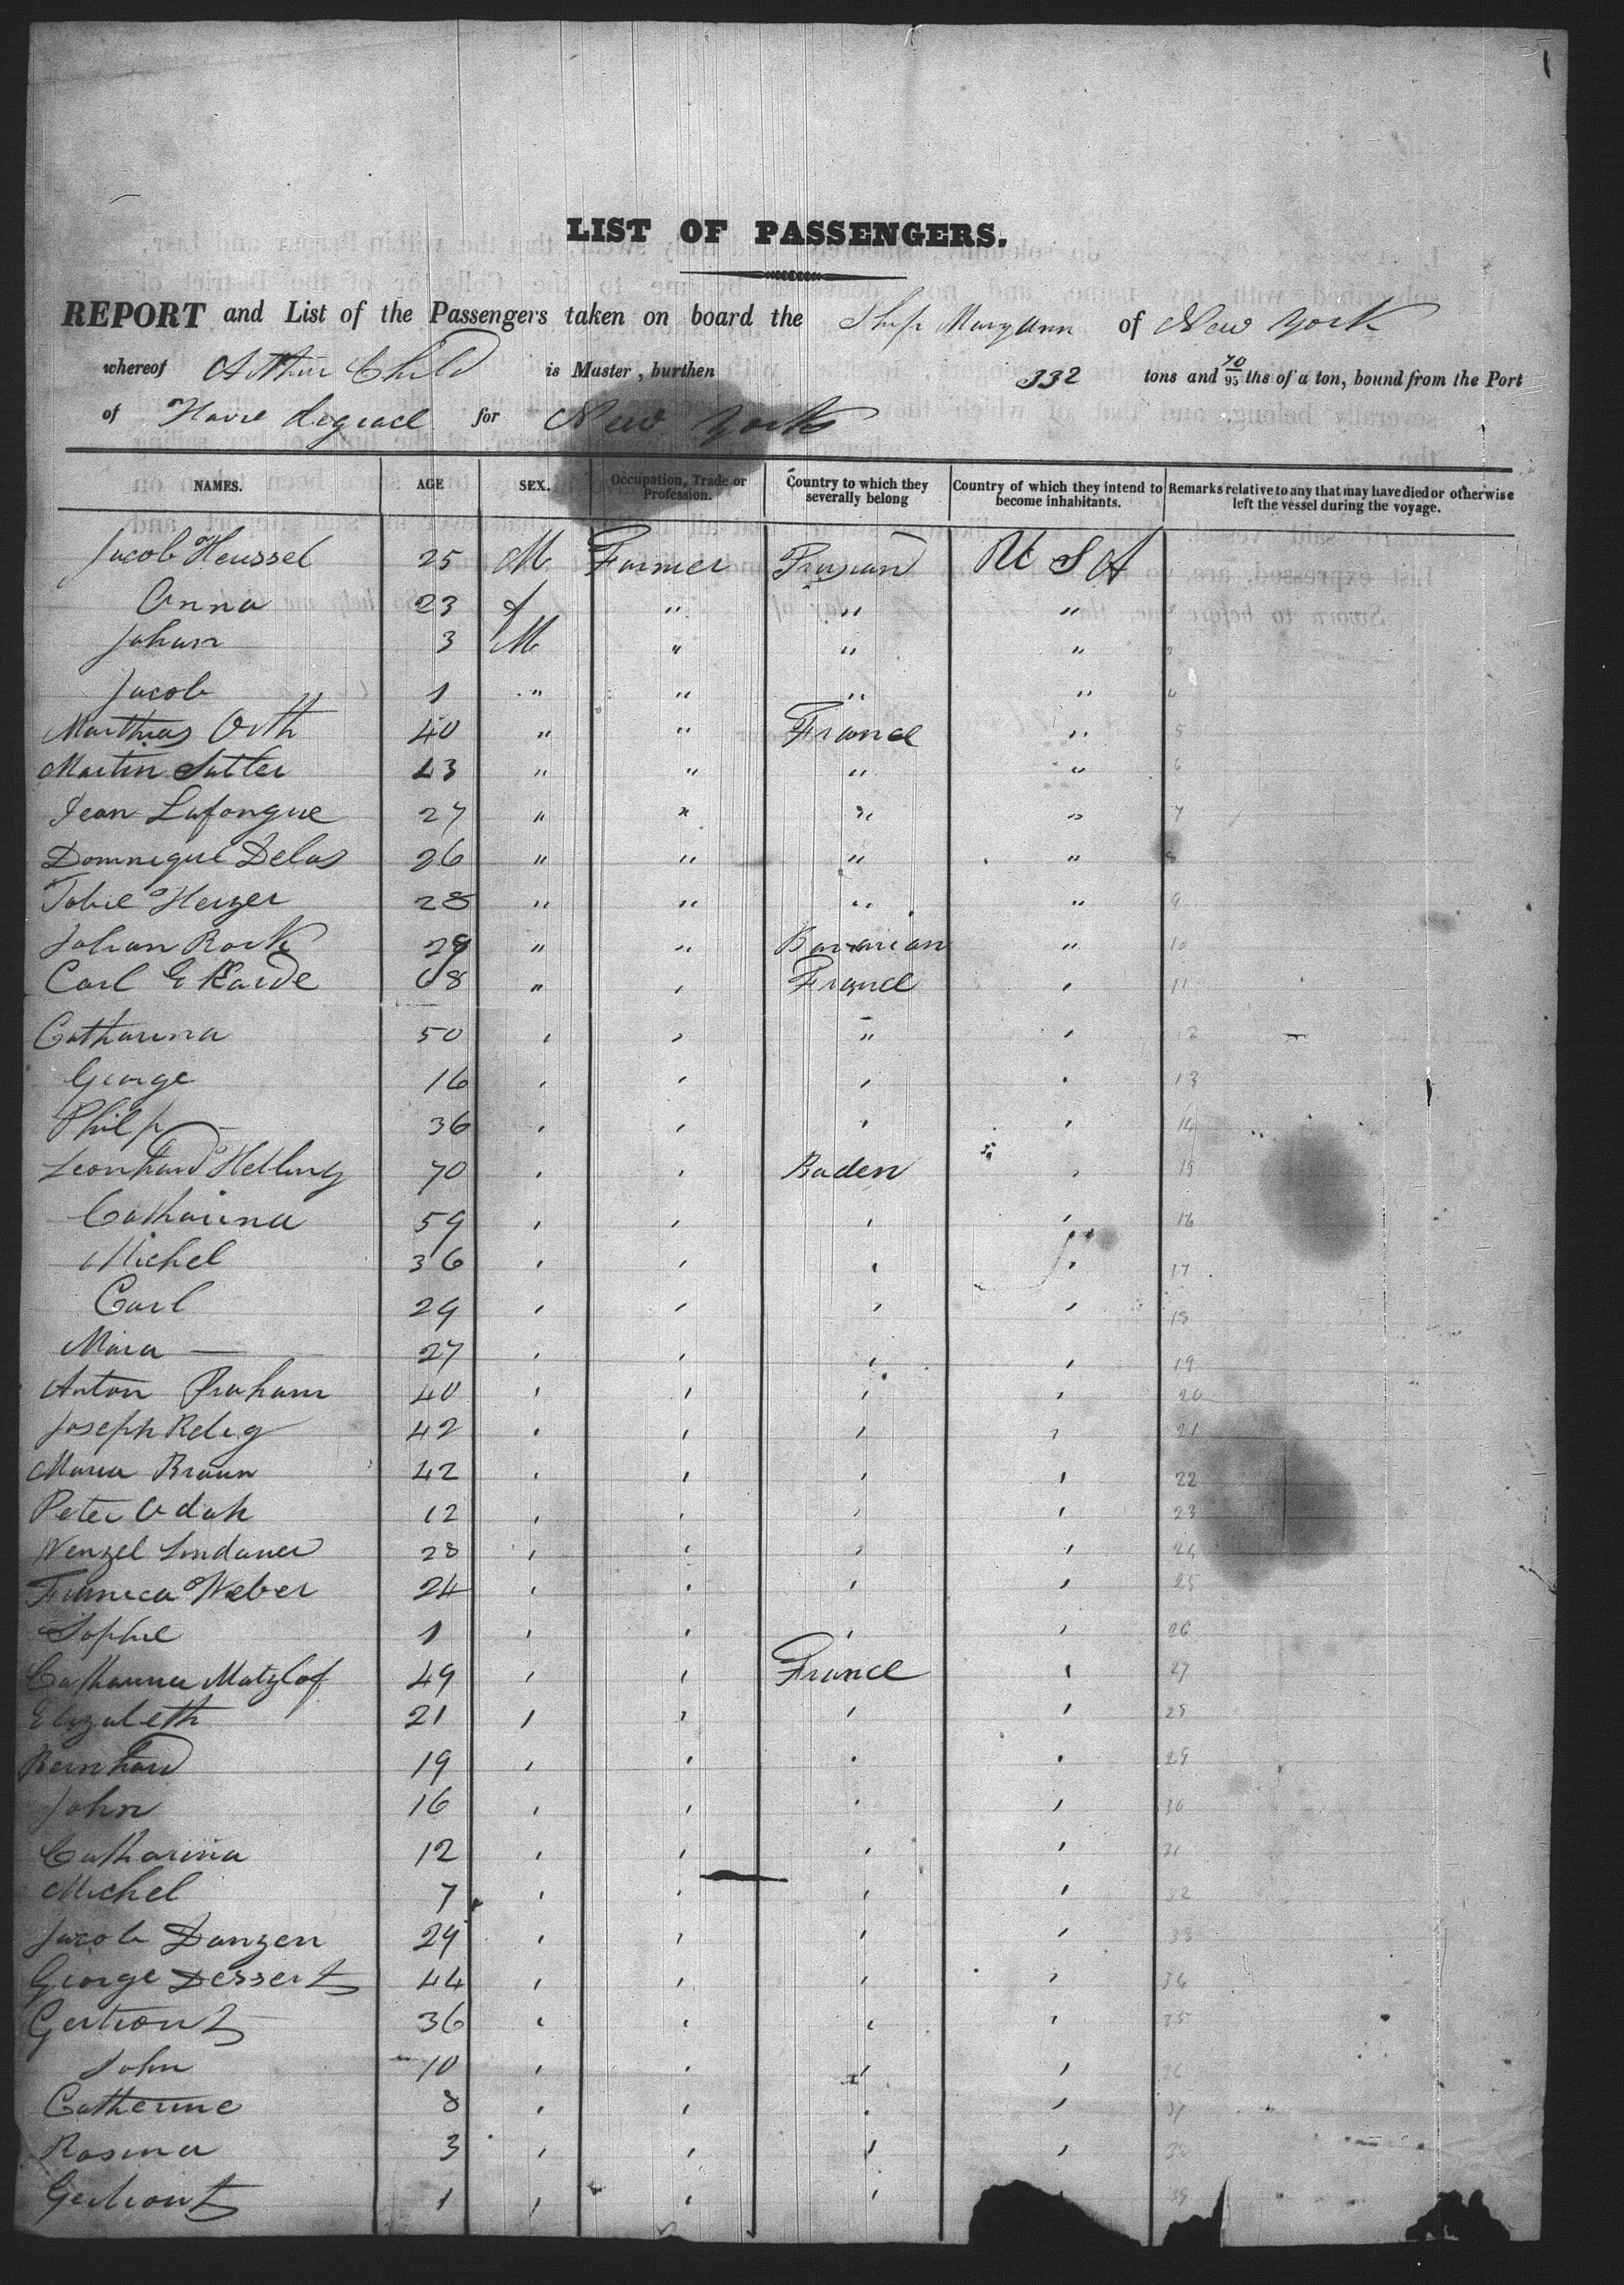 1
LIST OF PASSENGERS.
REPORT and List of the Passengers taken on board the Ship Mary Ann of New York
whereof Arthur Child is Master, burthen 332 tons and 70/95 ths of a ton, bound from the Port
of Havre degrace for New York
NAMES. AGE SEX. Occupation, Trade or Profession. Country to which they severally belong Country of which they intend to become inhabitants. Remarks relative to any that may have died or otherwise left the vessel during the voyage.
Jacob Heussel 25 M Farmer Prusian U S A
Anna 23 f " " "
Johan 3 M " " " 3
Jacob 1 " " " " 4
Matthias Orth 40 " " France " 5
Martin Sutter 43 " " " " 6
Jean Lafongue 27 " " " " 7
Dominique Delas 26 " " " " 8
Tobie Herzer 28 " " " " 9
Johan Rock 29 " " Bavarian " 10
Carl Ekarde 68 " ' France ' 11
Catharina 50 ' ' " ' 12
George 16 ' ' ' ' 13
Philp 36 ' ' ' ' 14
Leonhard Helling 70 ' ' Baden ' 15
Catharina 59 ' ' ' ' 16
Michel 36 ' ' ' ' 17
Carl 29 ' ' ' ' 18
Mara — 27 ' ' ' ' 19
Anton Praham 40 ' ' ' ' 20
Joseph Relig 42 ' ' ' ' 21
Maria Braun 42 ' ' ' ' 22
Peter Odah 12 ' ' ' ' 23
Wenzel Lindauer 28 ' ' ' ' 24
Weber 24 ' ' ' ' 25
Sophie 1 ' ' ' ' 26
Catharina Matzlof 49 ' ' France ' 27
Elizabeth 21 ' ' ' ' 28
Bernhard 19 ' ' ' ' 29
John 16 ' ' ' ' 30
Catharina 12 ' ' ' ' 31
Michel 7 ' ' ' ' 32
Jacob Danzen 29 ' ' ' ' 33
George Dessert 44 ' ' ' ' 34
Gertront 36 ' ' ' ' 35
John 10 ' ' ' ' 36
Catherine 8 ' ' ' ' 37
Rosina 3 ' ' ' ' 38
Gertront 1 ' ' ' 39